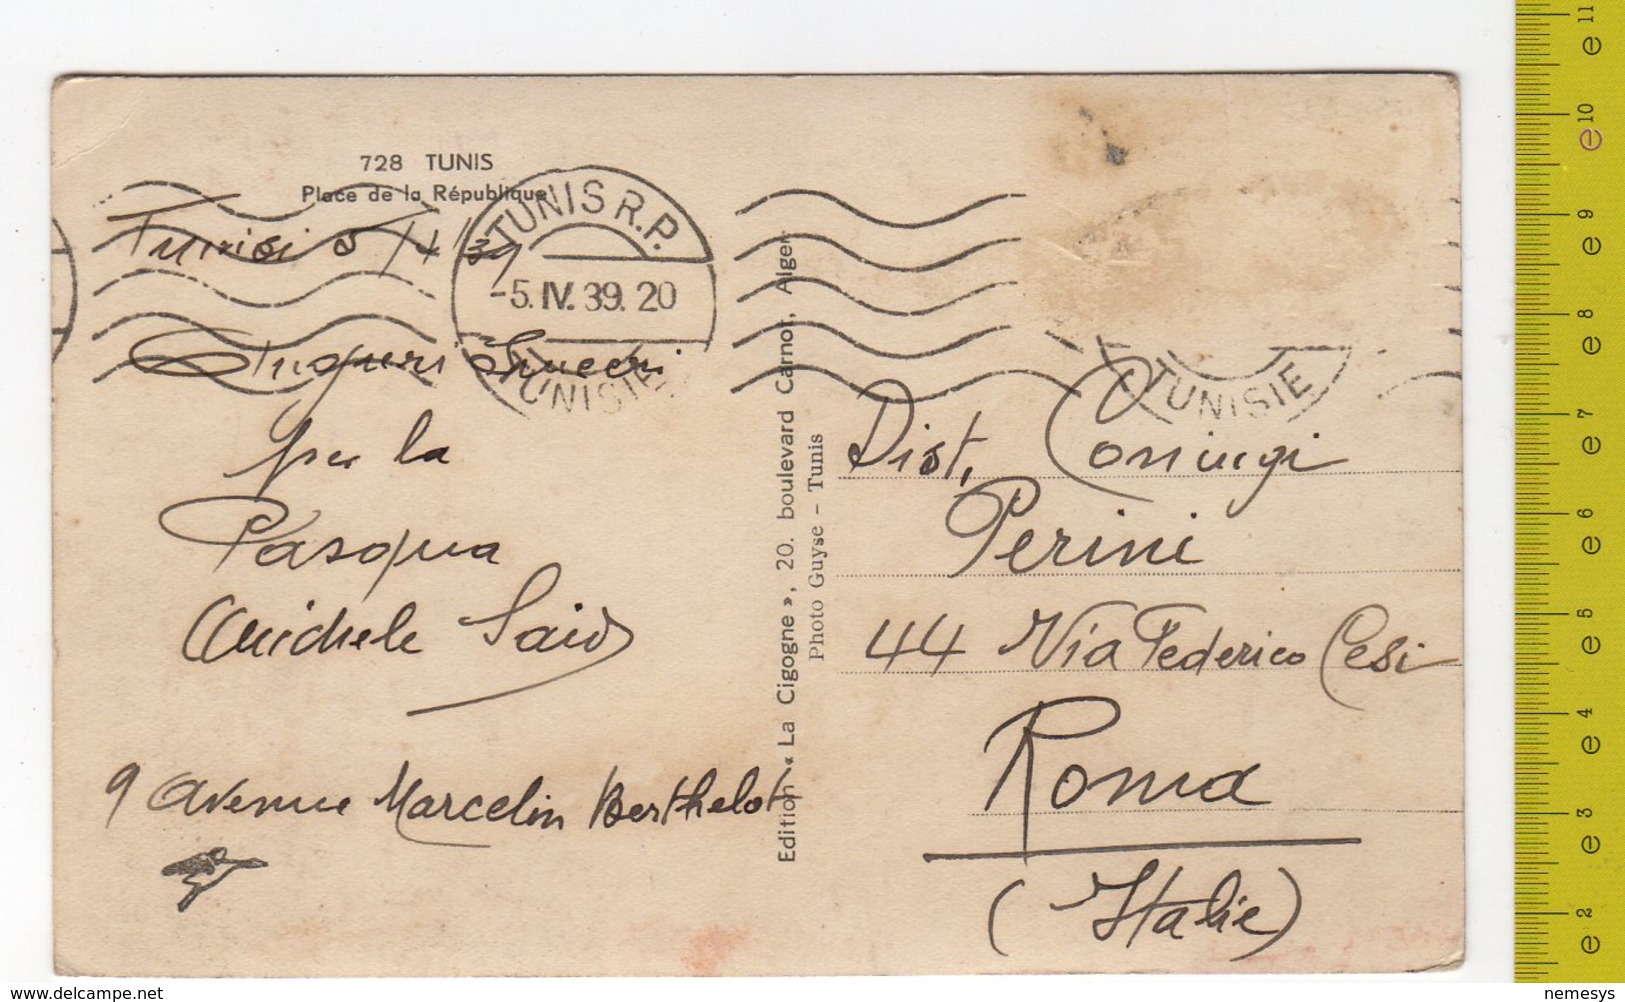 728 TUNIS
Place de la République
Tunisi 5/4/39
TUNIS R.P.
-5.IV.39.20
TUNISIE
Auguri Sinceri
per la
Pasqua
Michele Said
9 avenue Marcelin Berthelot
Edition « La Cigogne », 20. boulevard Carnot, Alger.
Photo Guyse - Tunis
TUNISIE
Dist. Coniugi
Perini
44 Via Federico Cesi
Roma
(Italie)
11
10
9
8
7
6
5
4
3
2
www.delcampe.net
nemesys